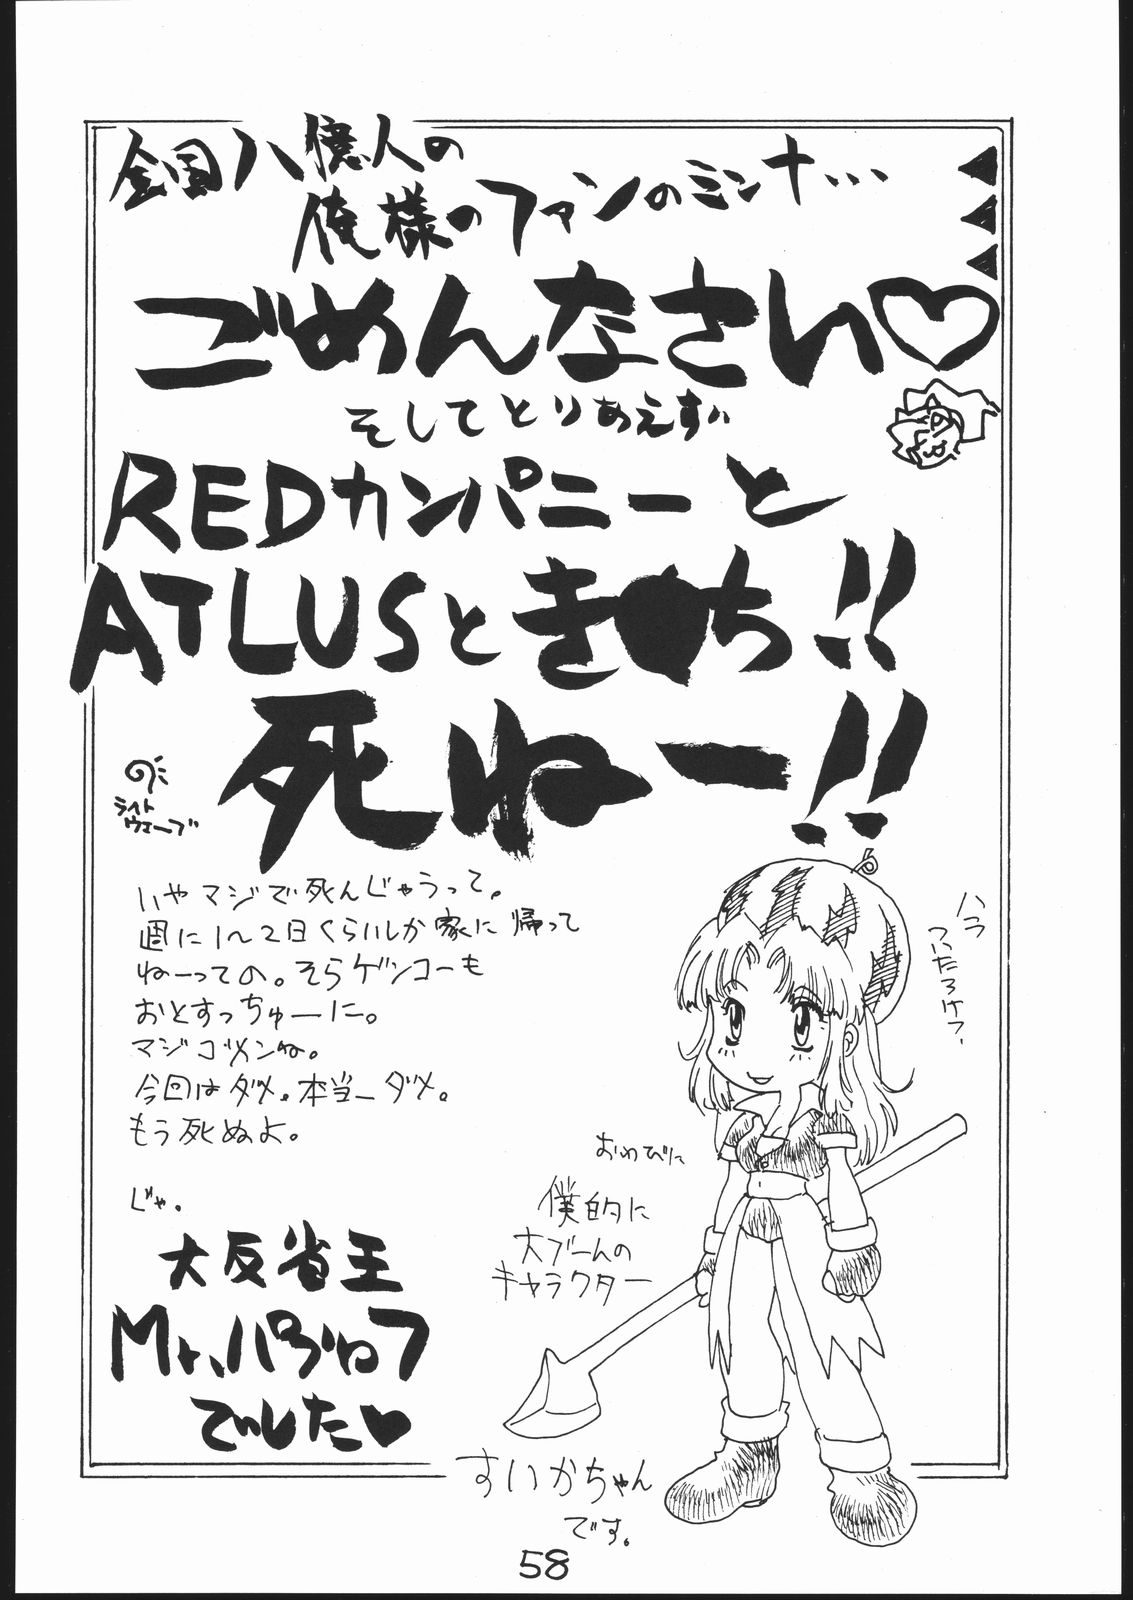 全国八億人の
俺様のファンのミンナ...
ごめんなさい♡
そしてとりあえず
REDカンパニーと
ATLUSとき●ち!!
死ねー!!
ライト
ウェーブ
いやマジで死んじゃうって。
週に1〜2日くらいしか家に帰って
ねーっての。そらゲンコーも
おとすっちゅーに。
マジゴメンね。
今回はダメ。本当ーダメ。
もう死ぬよ。
じゃ。
大反省王
Mr.パブロフ
でした♥
ハラ
ついたろけっ、
おわびに
僕的に
大ブームの
キャラクター
すいかちゃん
です。
58